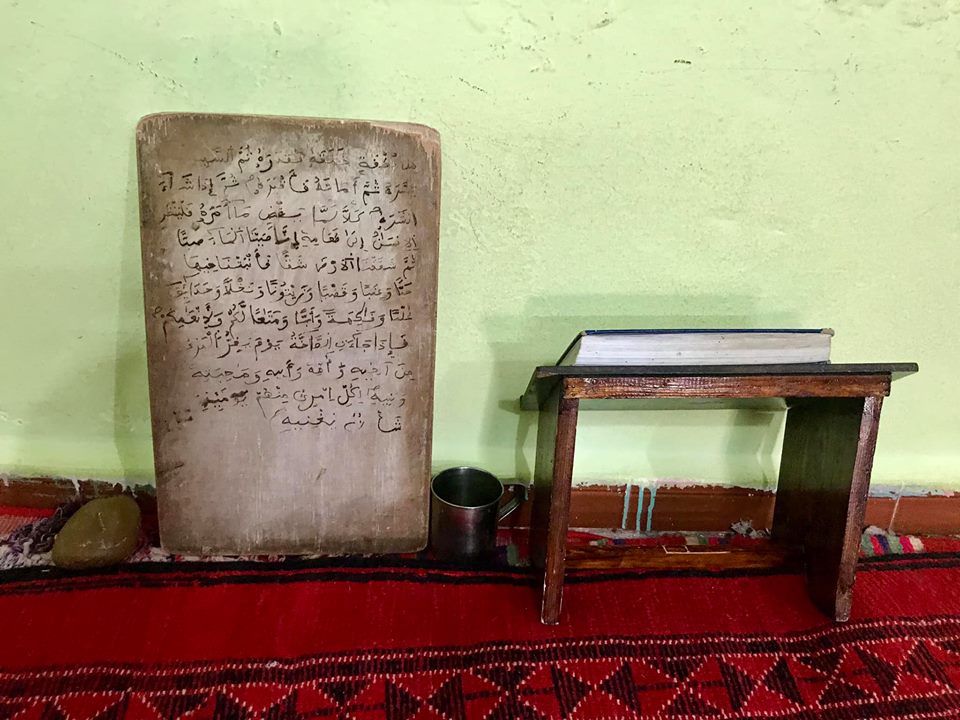 من نطفة خلقه فقدره ثم السبيل
يسره ثم أماته فأقبره ثم إذا شاء
أنشره كلا لما يقض ما أمره فلينظر
الإنسن إلى طعامه إنا صببنا الماء صبا
ثم شققنا الأرض شقا فأنبتنا فيها
حبا وعنبا وقضبا وزيتونا ونخلا وحدائق
غلبا وفكهة وأبا ومتعا لكم ولأنعمكم
فإذا جاءت الصاخة يوم يفر المرء
من أخيه وأمه وأبيه وصحبته
وبنيه لكل امرئ منهم يومئذ
شأن يغنيه